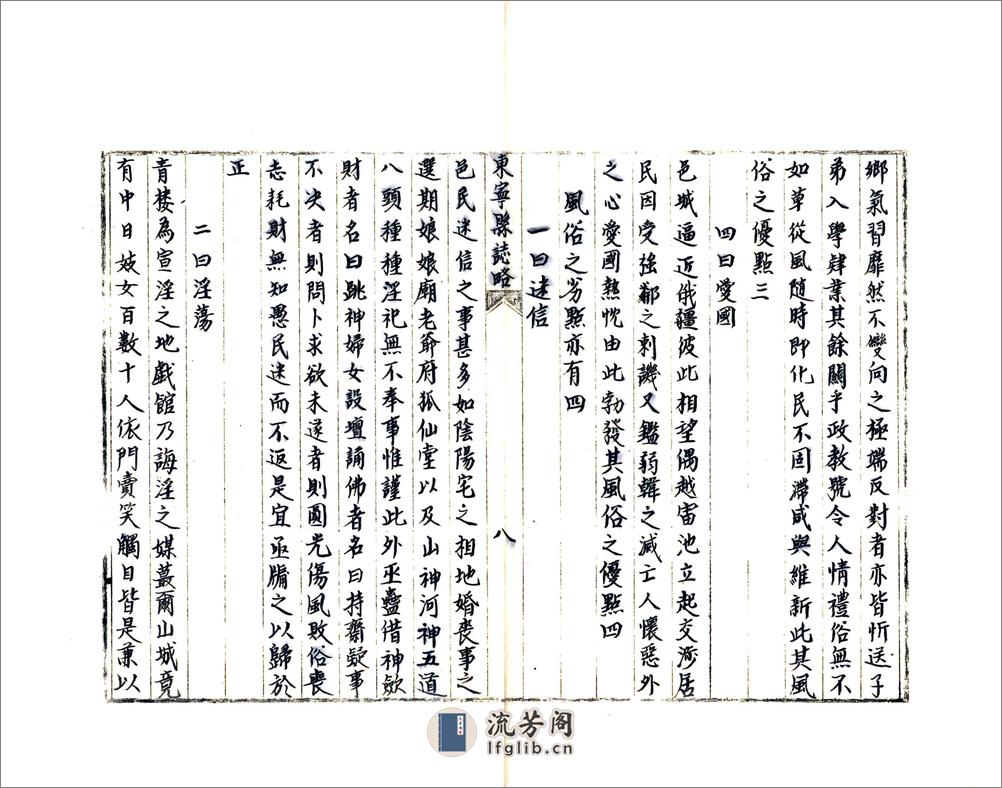 鄉氣習靡然不變向之極端反對者亦皆忻送子
弟入學肄業其餘關乎政教號令人情禮俗無不
如草從風隨時即化民不固滯咸與維新此其風
俗之優點三
四曰愛國
邑城逼近俄疆彼此相望偶越雷池立起交涉居
民因受強鄰之刺譏又鑑弱韓之滅亡人懷惡外
之心愛國熱忱由此勃發其風俗之優點四
風俗之劣點亦有四
一曰迷信
東寧縣誌略
八
邑民迷信之事甚多如陰陽宅之相地婚喪事之
選期娘娘廟老爺府狐仙堂以及山神河神五道
八頭種種淫祀無不奉事惟謹此外巫蠱借神歛
財者名曰跳神婦女設壇誦佛者名曰持齋疑事
不决者則問卜求欲未遂者則圓光傷風敗俗喪
志耗財無知愚民迷而不返是宜亟牖之以歸於
正
二曰淫蕩
青楼為宣淫之地戯館乃誨淫之媒蕞爾山城竟
有中日妓女百數十人依門賣笑觸目皆是兼以
流芳阁
lfglib.cn